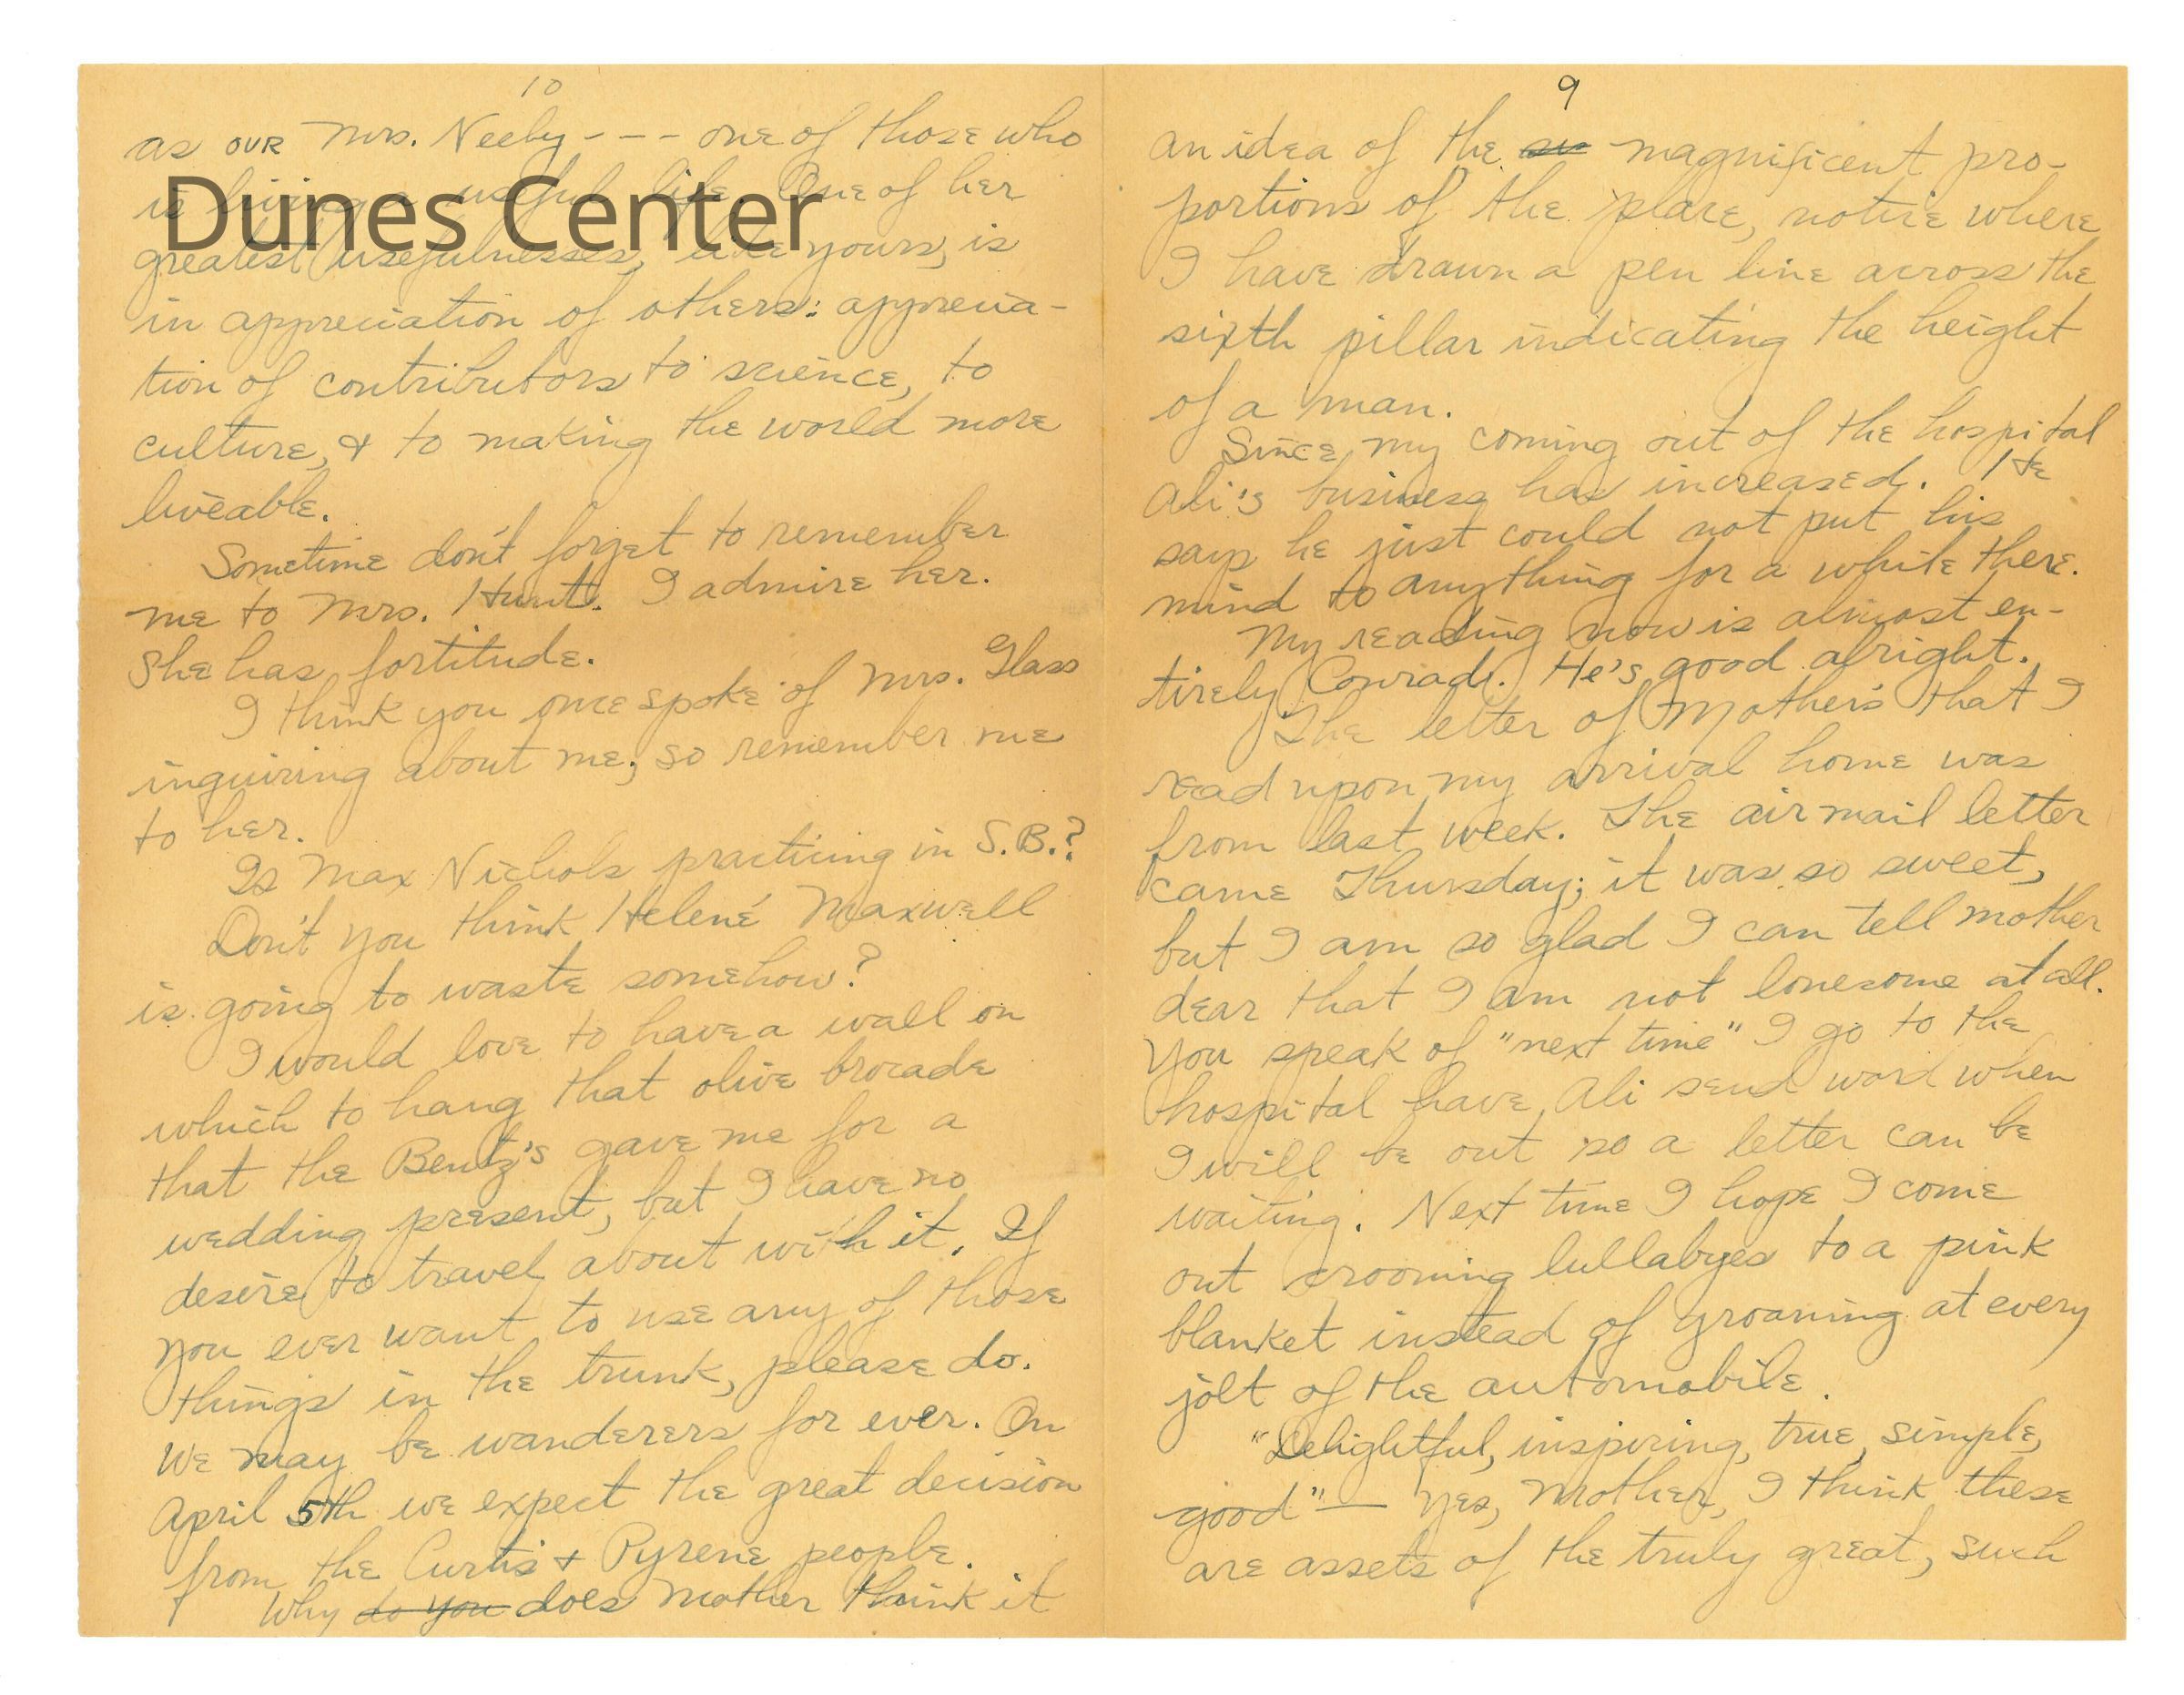 10
as OUR Mrs. Neeby - - - one of those who
is living a useful life. One of her
greatest usefulnesses, like yours, is
in appreciation of others: apprecia-
tion of contributors to science, to
culture, & to making the world more
liveable.
Sometime don't forget to remember
me to Mrs. Hunt. I admire her.
She has fortitude.
I think you once spoke of Mrs. Glass
inquiring about me, so remember me
to her.
Is Max Nichols practicing in S.B.?
Don't you think Helené Maxwell
is going to waste somehow?
I would love to have a wall on
which to hang that olive brocade
that the Bentz's gave me for a
wedding present, but I have no
desire to travel about with it. If
you ever want to use any of those
things in the trunk, please do.
We may be wanderers for ever. On
April 5th we expect the great decision
from the Curtis & Pyrene people.
Why do you does Mother think it
9
an idea of the magnificent pro-
portions of the place, notice where
I have drawn a pen line across the
sixth pillar indicating the height
of a man.
Since my coming out of the hospital
Ali's business has increased. He
says he just could not put his
mind to anything for a while there.
My reading now is almost en-
tirely Conrad. He's good alright.
The letter of Mother's that I
read upon my arrival home was
from last week. The air mail letter
came Thursday; it was so sweet,
but I am so glad I can tell mother
dear that I am not lonesome at all.
You speak of "next time" I go to the
hospital have Ali send word when
I will be out so a letter can be
waiting. Next time I hope I come
out crooning lullabyes to a pink
blanket instead of groaning at every
jolt of the automobile.
"Delightful, inspiring, true, simple,
good" — Yes, Mother, I think these
are assets of the truly great, such
Dunes Center